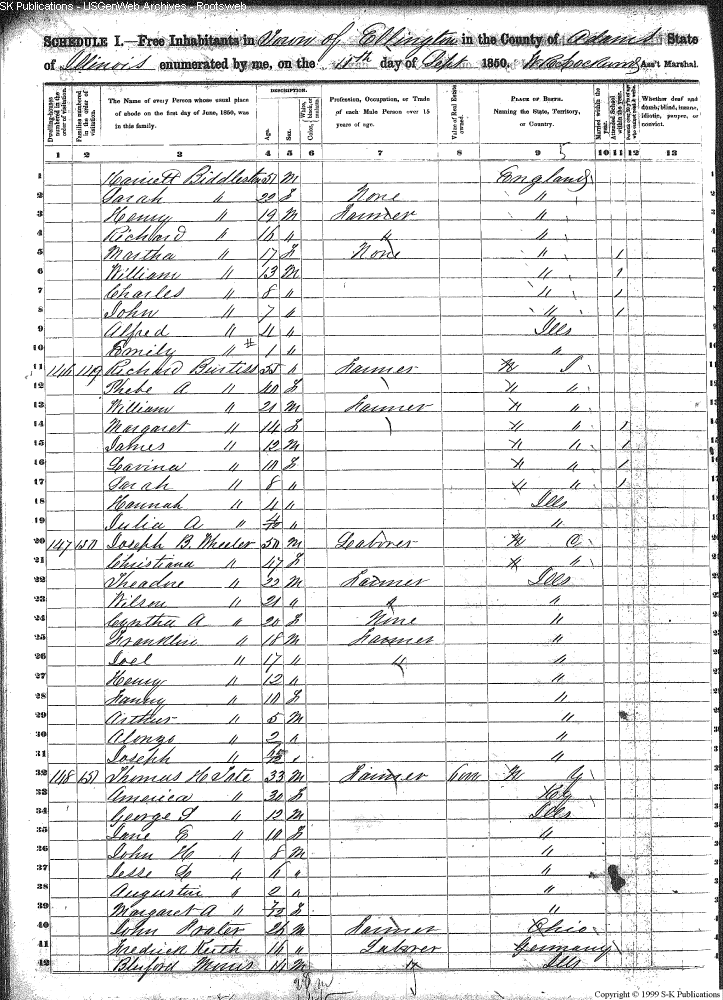 SK Publications - USGenWeb Archives - Rootsweb
SCHEDULE I.—Free Inhabitants in Town of Ellington in the County of Adams State
of Illinois enumerated by me, on the 10th day of Sept 1850. Ass't Marshal.
Dwelling-houses numbered in the order of visitation. Families numbered in the order of visitation. The Name of every Person whose usual place of abode on the first day of June, 1850, was in this family. DESCRIPTION. Age. Sex. White, black, or mulatto. Color, Profession, Occupation, or Trade of each Male Person over 15 years of age. Value of Real Estate owned. PLACE OF BIRTH. Naming the State, Territory, or Country. Married within the year. Attended School within the year. Persons over 20 y'rs of age who cannot read & write. Whether deaf and dumb, blind, insane, idiotic, pauper, or convict.
1 2 3 4 5 6 7 8 9 10 11 12 13
1 Harriett Biddleston M England
2 Sarah " 22 F None "
3 Henny " 19 M Farmer "
4 Richard " 16 " " "
5 Martha " 17 F None " 1
6 William " 13 M " 1
7 Charles " 8 " " 1
8 John " 7 " " 1
9 Alfred " 4 " Ills
10 Emily " 1 " "
11 146 149 Richard Burtiss 55 " Farmer N J
12 Phebe A " 40 F " "
13 William " 21 M Farmer " "
14 Margaret " 14 F " " 1
15 James " 12 M " " 1
16 Lavina " 10 F " " 1
17 Sarah " 8 " " " 1
18 Hannah " 4 " Ills
19 Julia A " "  "
20 147 150 Joseph B. Wheeler 50 M Laborer N C
21 Christiana " 47 F " "
22 Theadore " 22 M Farmer Ills
23 Wilson " 21 " " "
24 Cyntha A " 20 F None "
25 Franklin " 18 M Farmer "
26 Joel " 17 " " "
27 Henny " 12 " "
28 Fanny " 10 F "
29 Arthur " 5 M "
30 Alonzo " 2 " "
31 Joseph " "
32 148 151 Thomas H Tate 33 M Farmer 600 N Y
33 America " 30 F Ky
34 George " 12 M Ills
35 Jane E " 10 F "
36 John H " 8 M "
37 Jesse " 6 " "
38 Augustin " 2 " "
39 Margaret A " F "
40 John Prater 26 M Farmer Ohio
41 Fredrick Keith 16 " Laborer Germany
42 Bluford Mimis 14 M " Ills
Copyright © 1999 S-K Publications